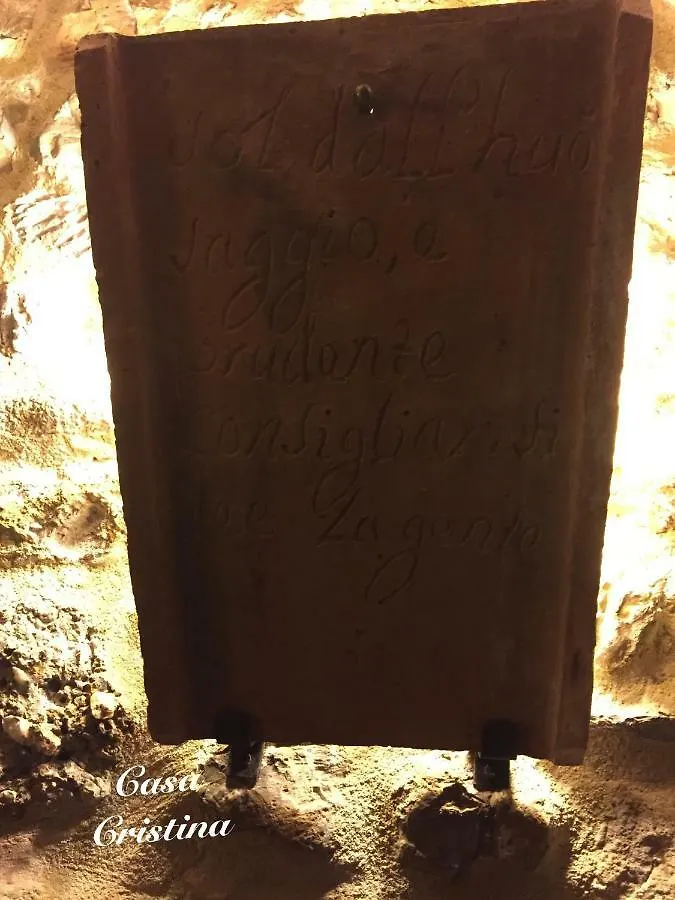 dall'huō
saggio, e
prudante
Consigliarsi
La gente
Casa
Cristina